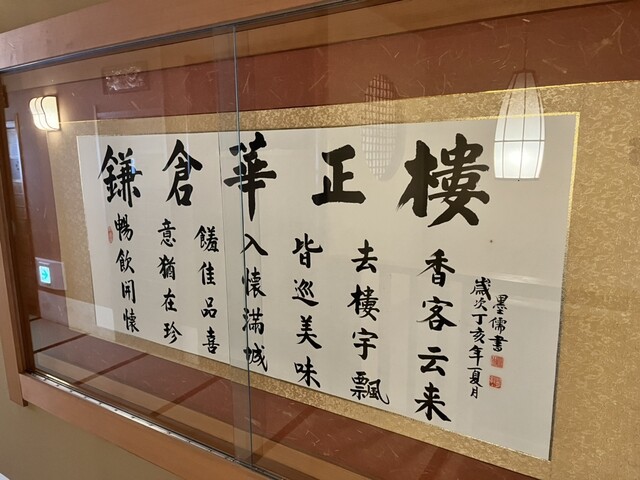 鎌倉華正樓
暢飲開懷
意猶在珍
饈佳品喜
入懷滿城
皆巡美味
去樓宇飄
香客云来
歲次丁亥年夏月
墨儒書